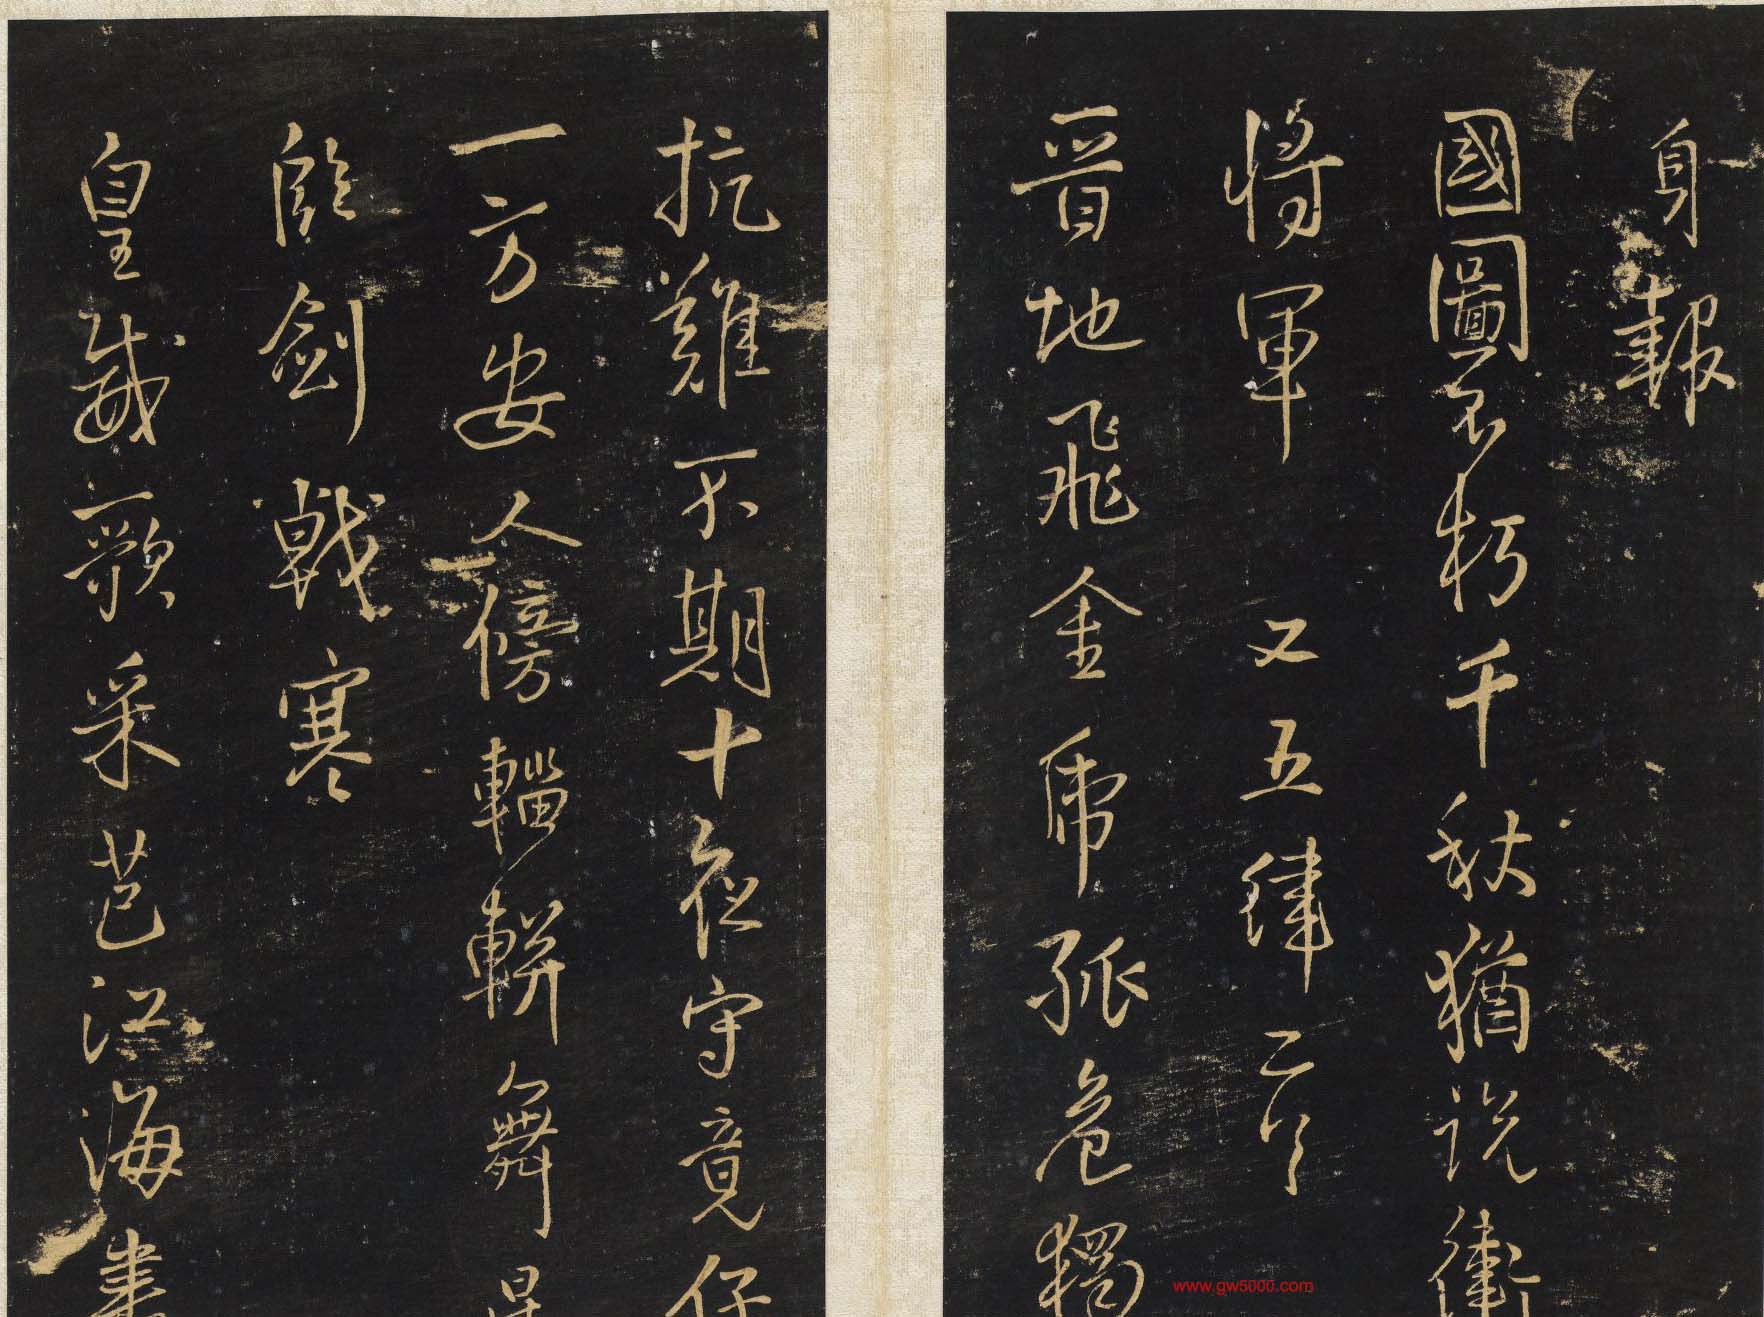 身報
國圖不朽千秋猶說衛
將軍 又五律二首
晉地飛金虎孤危獨
抗難不期十夜守竟保
一方安人傍輜軿舞
臨劍戟寒
皇威歌采芑江海畫
www.gw5000.com